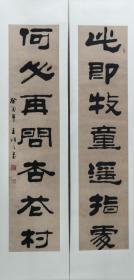 此即牧童遙指處
何必再問杏花村